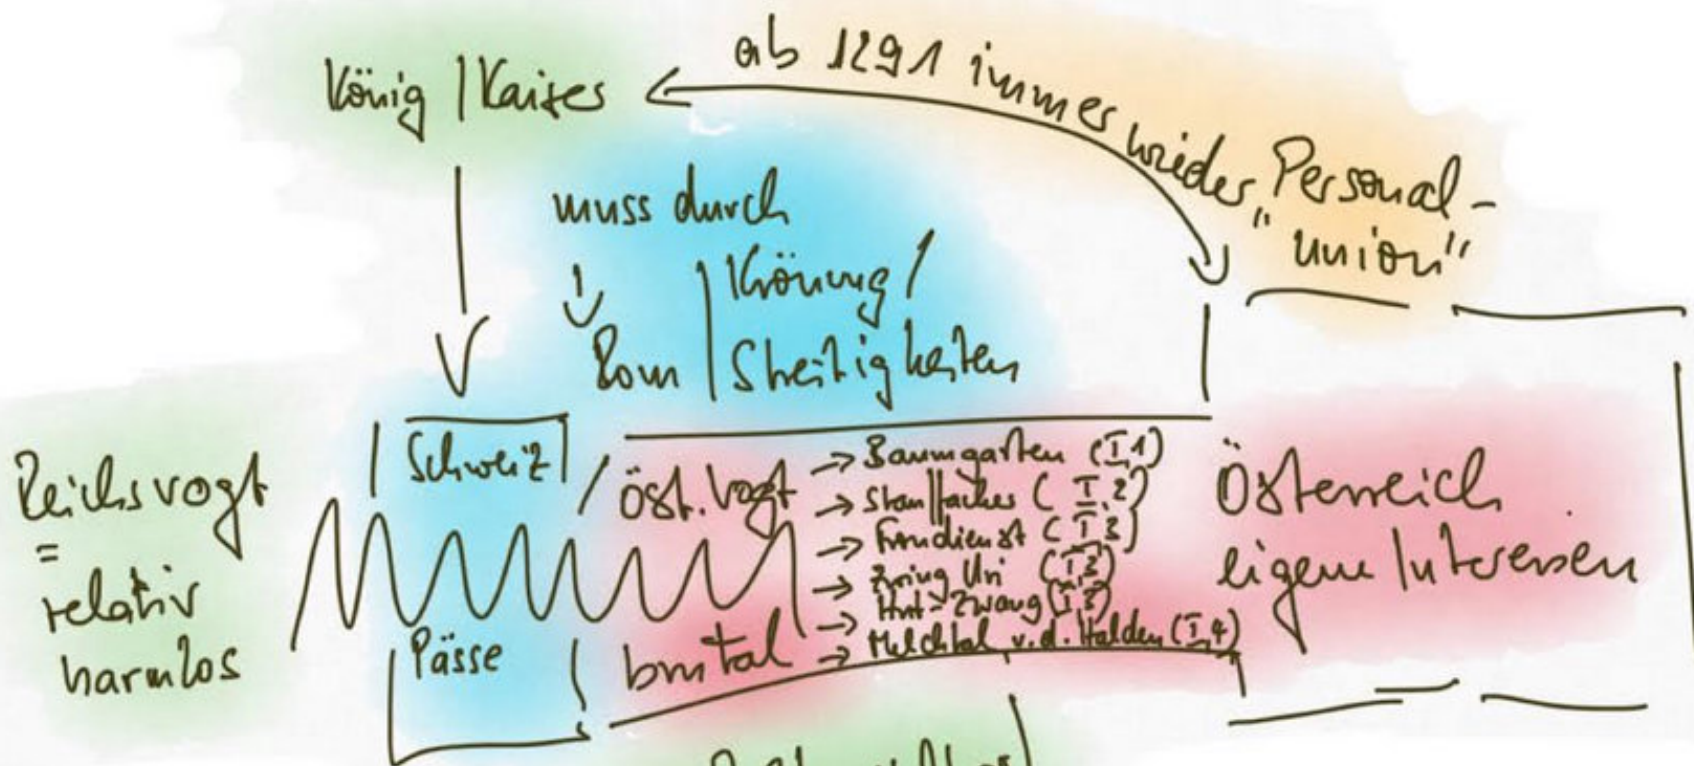 König | Kaiser
ab 1291 immer wieder "Personal-
union"
muss durch
Rom | Krönung /
Streitigkeiten
Reichsvogt
=
relativ
harmlos
Schweiz
Pässe
öst. Vogt
brutal
→ Baumgarten (I,1)
→ Stauffacher (I,2)
→ Frondienst (I,3)
→ Zwing Uri (I,3)
Hut-Zwang (I,3)
→ Melchtal v.d. Halden (I,4)
Österreich
eigene Interessen